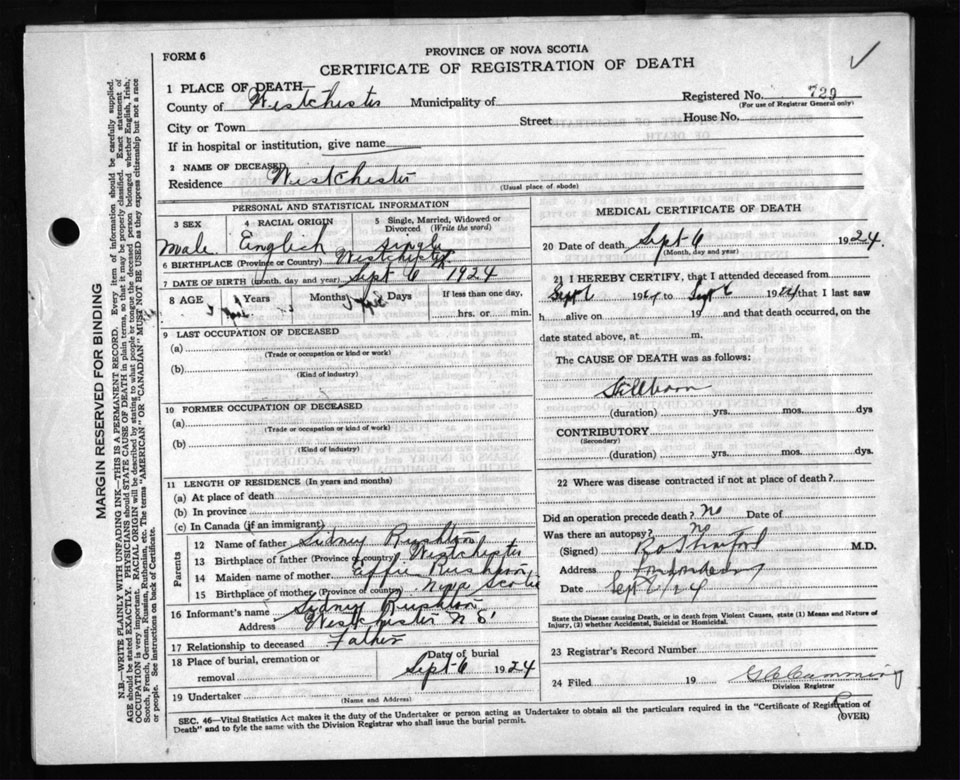 FORM 6
PROVINCE OF NOVA SCOTIA
CERTIFICATE OF REGISTRATION OF DEATH
1 PLACE OF DEATH
County of Westchester Municipality of Registered No. 729
(For use of Registrar General only)
City or Town Street House No.
If in hospital or institution, give name
2 NAME OF DECEASED
Residence Westchester
(Usual place of abode)
PERSONAL AND STATISTICAL INFORMATION
3 SEX 4 RACIAL ORIGIN 5 Single, Married, Widowed or Divorced (Write the word)
Male English single
6 BIRTHPLACE (Province or Country) Westchester
7 DATE OF BIRTH (month, day and year) Sept 6 1924
8 AGE Years Months Days If less than one day,
hrs. or min.
9 LAST OCCUPATION OF DECEASED
(a)
(Trade or occupation or kind or work)
(b)
(Kind of industry)
10 FORMER OCCUPATION OF DECEASED
(a)
(Trade or occupation or kind or work)
(b)
(Kind of industry)
11 LENGTH OF RESIDENCE (In years and months)
(a) At place of death
(b) In province
(c) In Canada (if an immigrant)
Parents
12 Name of father Sidney Rushton
13 Birthplace of father (Province or country) Westchester
14 Maiden name of mother Effie Rushton
15 Birthplace of mother (Province or country) Nova Scotia
16 Informant's name Sidney Rushton
Address Westchester N S
17 Relationship to deceased Father
18 Place of burial, cremation or removal Date of burial
Sept 6 1924
19 Undertaker
(Name and Address)
MEDICAL CERTIFICATE OF DEATH
20 Date of death Sept 6 1924
(Month, day and year)
21 I HEREBY CERTIFY, that I attended deceased from
Sept 6 1924 to Sept 6 1924 that I last saw
h alive on 19 and that death occurred, on the
date stated above, at m.
The CAUSE OF DEATH was as follows:
Stillborn
(duration) yrs. mos. dys
CONTRIBUTORY
(Secondary)
(duration) yrs. mos. dys.
22 Where was disease contracted if not at place of death?
Did an operation precede death? No Date of
Was there an autopsy? No
(Signed) M.D.
Address Londonderry
Date Sept 6/24
State the Disease causing Death, or in death from Violent Causes, state (1) Means and Nature of
Injury, (2) whether Accidental, Suicidal or Homicidal.
23 Registrar's Record Number
24 Filed 19 G C Cumming
Division Registrar
SEC. 46—Vital Statistics Act makes it the duty of the Undertaker or person acting as Undertaker to obtain all the particulars required in the "Certificate of Registration of
Death" and to fyle the same with the Division Registrar who shall issue the burial permit.
(OVER)
MARGIN RESERVED FOR BINDING
N.B.—WRITE PLAINLY WITH UNFADING INK—THIS IS A PERMANENT RECORD. Every item of Information should be carefully supplied.
AGE should be stated EXACTLY. PHYSICIANS should STATE CAUSE OF DEATH in plain terms, so that it may be properly classified. Exact statement of
OCCUPATION is very important. RACIAL ORIGIN will be described by stating to what people or tongue the deceased person belonged whether English, Irish,
Scotch, French, German, Russian, Ruthenian, etc. The terms "AMERICAN" OR "CANADIAN" MUST NOT BE USED as they express citizenship but not a race
or people. See instructions on back of Certificate.